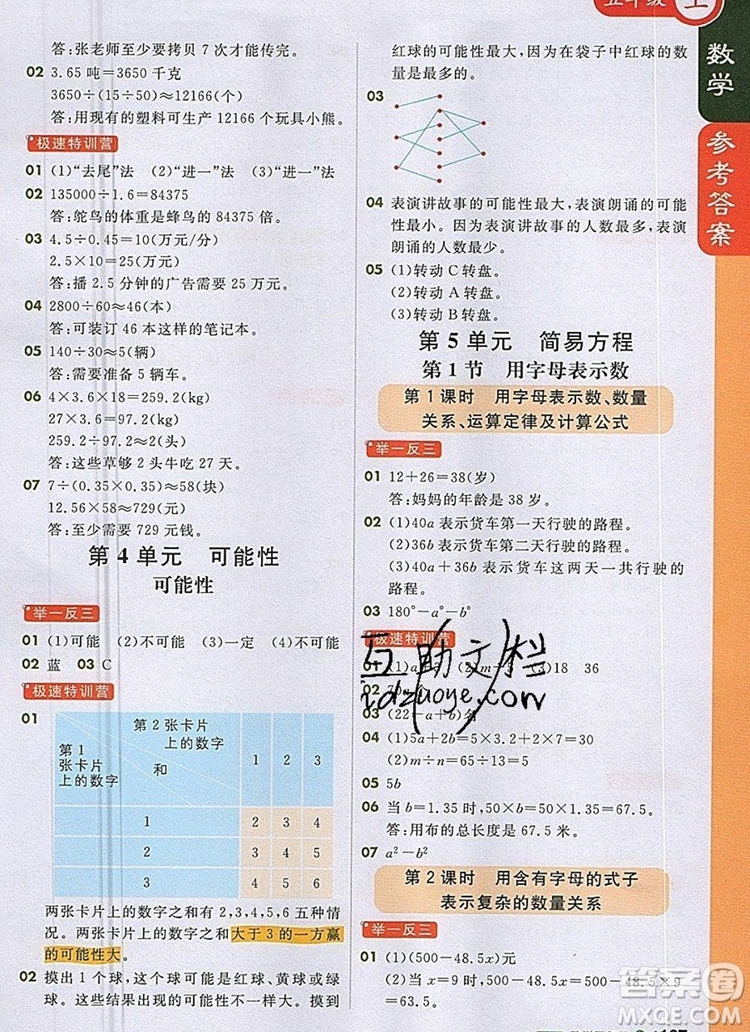 五年级 上
数学
参考答案
答:张老师至少要拷贝 7 次才能传完。
02 3.65 吨=3650 千克
3650÷(150÷500)≈12166(个)
答:用现有的塑料可生产 12166 个玩具小熊。
极速特训营
01 (1)“去尾”法 (2)“进一”法 (3)“进一”法
02 135000÷1.6=84375
答:鸵鸟的体重是蜂鸟的 84375 倍。
03 4.5÷0.45=10(万元/分)
2.5×10=25(万元)
答:播 2.5 分钟的广告需要 25 万元。
04 2800÷60≈46(本)
答:可装订 46 本这样的笔记本。
05 140÷30≈5(辆)
答:需要准备 5 辆车。
06 4×3.6×18=259.2(kg)
27×3.6=97.2(kg)
259.2÷97.2≈2(头)
答:这些草够 2 头牛吃 27 天。
07 7÷(0.35×0.35)≈58(块)
12.56×58≈729(元)
答:至少需要 729 元钱。
第 4 单元 可能性
可能性
举一反三
01 (1)可能 (2)不可能 (3)一定 (4)不可能
02 蓝 03 C
极速特训营
01
第 2 张卡片上的数字
和
第 1 张卡片上的数字
1 2 3
1 2 3 4
2 3 4 5
3 4 5 6
两张卡片上的数字之和有 2,3,4,5,6 五种情
况。两张卡片上的数字之和大于 3 的一方赢
的可能性大。
02 摸出 1 个球,这个球可能是红球、黄球或绿
球。这些结果出现的可能性大小不同。摸到
红球的可能性最大,因为在袋子中红球的数
量是最多的。
03
04 表演讲故事的可能性最大,表演朗诵的可能
性最小。因为表演讲故事的人数最多,表演
朗诵的人数最少。
05 (1)转动 C 转盘。
(2)转动 A 转盘。
(3)转动 B 转盘。
第 5 单元 简易方程
第 1 节 用字母表示数
第 1 课时 用字母表示数、数量
关系、运算定律及计算公式
举一反三
01 12+26=38(岁)
答:妈妈的年龄是 38 岁。
02 (1)40a 表示货车第一天行驶的路程。
(2)36b 表示货车第二天行驶的路程。
(3)40a+36b 表示货车这两天一共行驶的
路程。
03 180°-a°-b°
极速特训营
01 (3)18 36
02
03 (22-a+b)名
04 (1)5a+2=5×3.2+2×7=30
(2)m÷n=65÷1.3=50
05 5b
06 当 b=1.35 时,50b=50×1.35=67.5。
答:用布的总长度是 67.5 米。
07 a²-b²
第 2 课时 用含有字母的式子
表示复杂的数量关系
举一反三
01 (1)(500-48.5x)元
(2)当 x=9 时,500-48.5x=500-48.5×9
=63.5。
互助文档
hdzuoye.com
答案圈
MXQE.COM